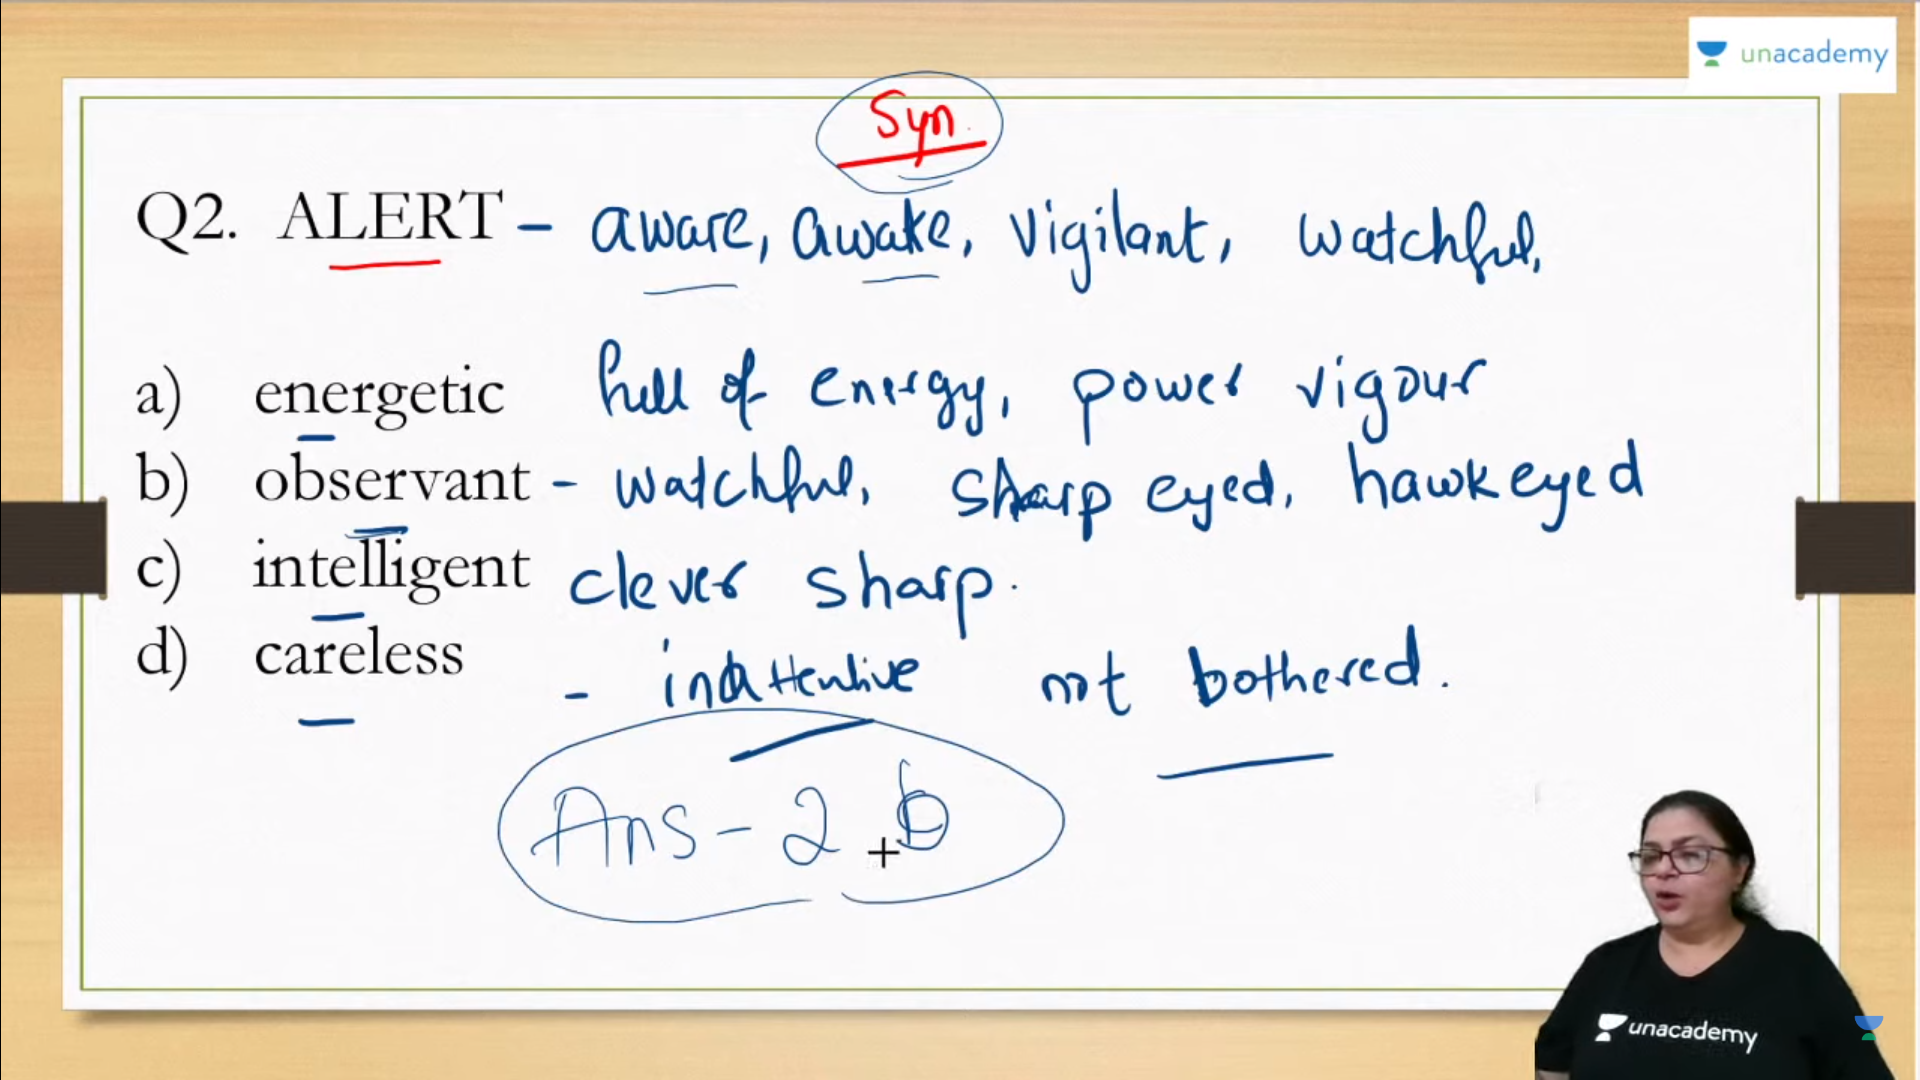 unacademy
Syn.
Q2. ALERT - aware, awake, vigilant, watchful,
a) energetic full of energy, power vigour
b) observant - watchful, sharp eyed, hawkeyed
c) intelligent clever sharp.
d) careless - inattentive not bothered.
Ans - 2 b
unacademy